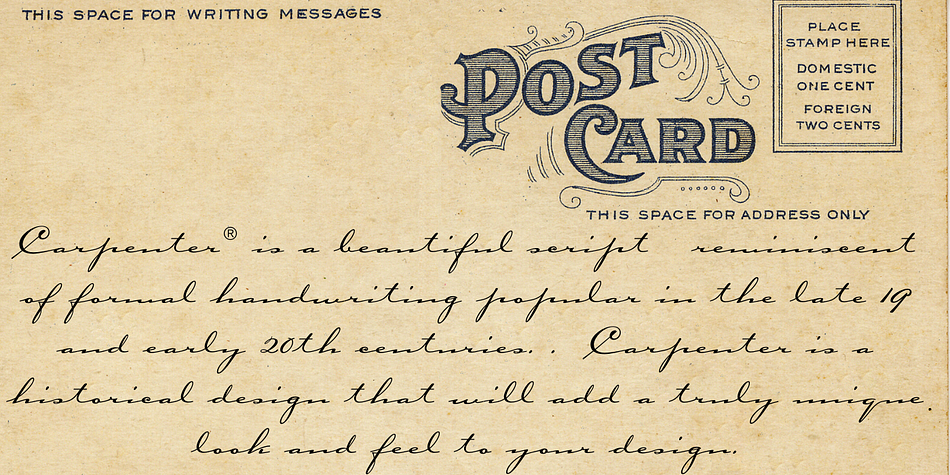 THIS SPACE FOR WRITING MESSAGES
POST
CARD
PLACE
STAMP HERE
DOMESTIC
ONE CENT
FOREIGN
TWO CENTS
THIS SPACE FOR ADDRESS ONLY
Carpenter® is a beautiful script reminiscent
of formal handwriting popular in the late 19
and early 20th centuries. . Carpenter is a
historical design that will add a truly unique.
look and feel to your design.